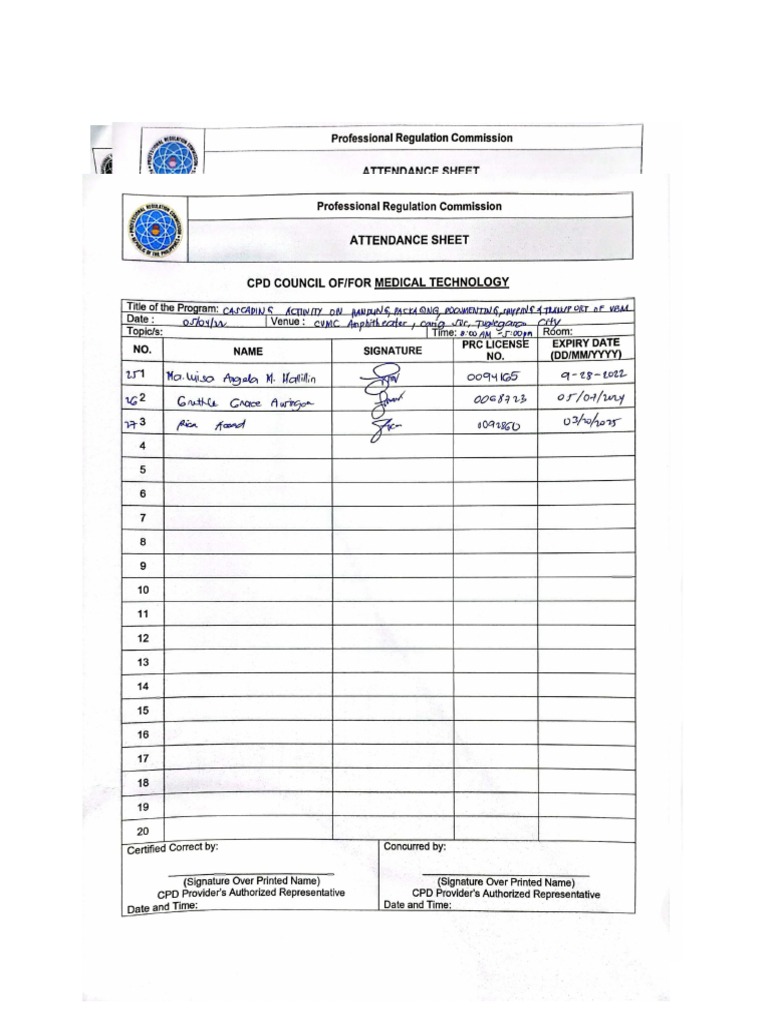 Professional Regulation Commission
ATTENDANCE SHEET
Professional Regulation Commission
ATTENDANCE SHEET
CPD COUNCIL OF/FOR MEDICAL TECHNOLOGY
Title of the Program: CASCADING ACTIVITY ON HANDLING, PACKAGING, DOCUMENTING, SHIPPING & TRANSPORT OF
Date : 05/04/22 Venue : CVMC Amphitheater, Carig Sur, Tuguegarao City
Topic/s: Time: 8:00 AM - 5:00pm Room:
NO. NAME SIGNATURE PRC LICENSE NO. EXPIRY DATE (DD/MM/YYYY)
25 1 Ma. Luisa Angela M. Mallillin 0094165 9-28-2022
26 2 Grace 0068723 05/07/2024
27 3 0092860 03/20/2025
4
5
6
7
8
9
10
11
12
13
14
15
16
17
18
19
20
Certified Correct by: Concurred by:
(Signature Over Printed Name) (Signature Over Printed Name)
CPD Provider's Authorized Representative CPD Provider's Authorized Representative
Date and Time: Date and Time: